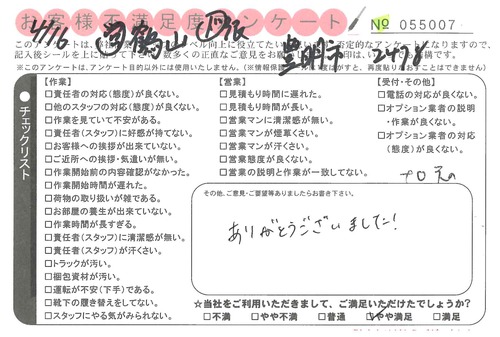 お客様不満足度アンケート
№ 055007
4/16
鶴山
豊明市
2476
※このアンケートは、アンケート目的以外には使用いたしません。
チェックリスト
【作業】
□責任者の対応(態度)が良くない。
□他のスタッフの対応(態度)が良くない。
□作業を見ていて不安がある。
□責任者(スタッフ)に好感が持てない。
□お客様への挨拶が出来ていない。
□ご近所への挨拶・気遣いが無い。
□作業開始前の内容確認がなかった。
□作業開始時間が遅れた。
□荷物の取り扱いが雑である。
□お部屋の養生が出来ていない。
□作業時間が長すぎる。
□責任者(スタッフ)に清潔感が無い。
□責任者(スタッフ)が汗くさい。
□トラックが汚い。
□梱包資材が汚い。
□運転が不安(下手)である。
□靴下の履き替えをしてない。
□スタッフにやる気がみられない。
【営業】
□見積もりに遅れた。
□見積もり時間が長い。
□営業マンに清潔感が無い。
□営業マンが煙草くさい。
□営業マンが汗くさい。
□営業態度が良くない。
□営業の説明と作業が一致してない。
【受付・その他】
□電話の対応が良くない。
□オプション業者の説明
・作業が良くない。
□オプション業者の対応
(態度)が良くない。
その他、ご意見・ご要望等ありましたらお書き下さい。
ありがとうございました!
☆当社をご利用いただきまして、ご満足いただけたでしょうか?
□不満 □やや不満 □普通 □やや満足 □満足